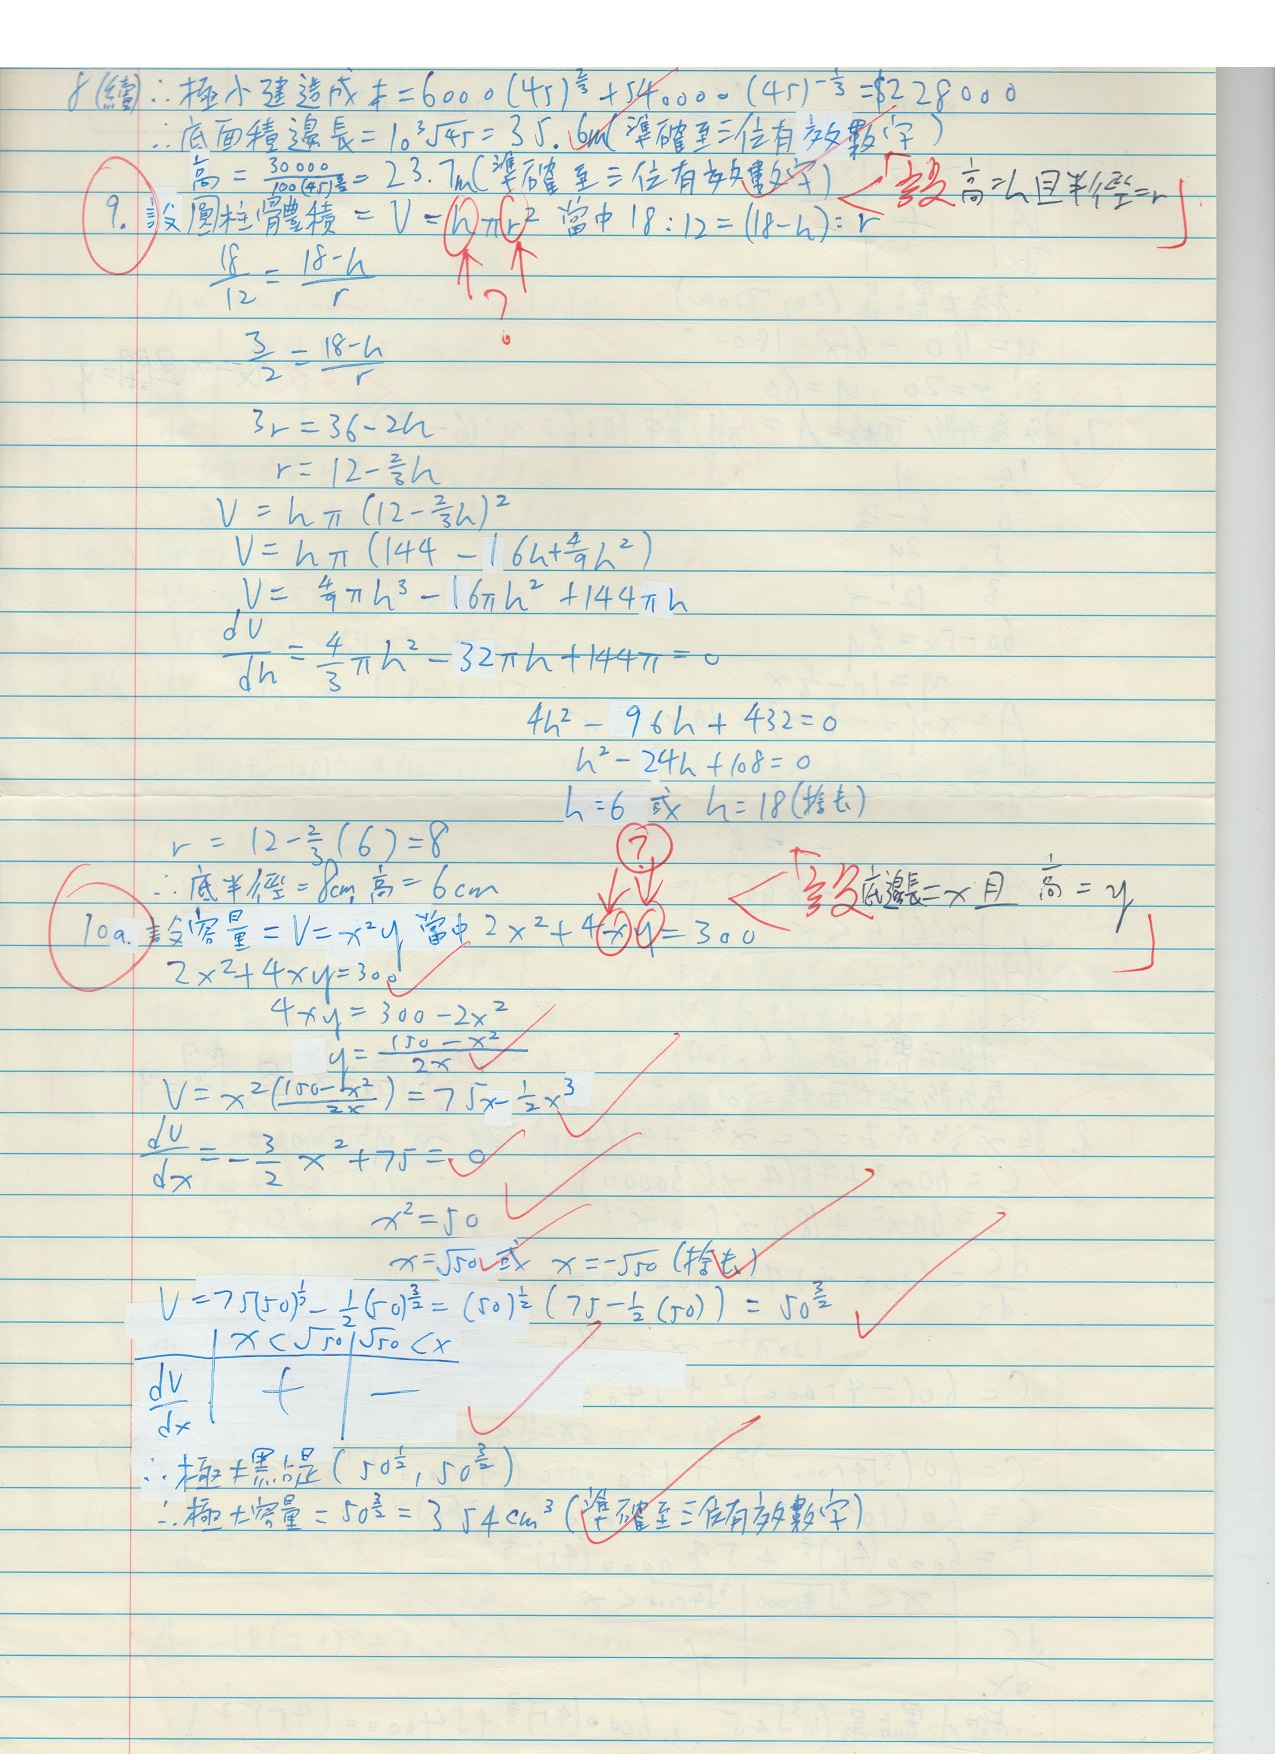 8(續)∴極小建造成本=6000(45)^(2/3)+540000(45)^(-1/3)=$228000
∴底面積邊長=10³√45=35.6m(準確至三位有效數字)
高=30000/100(45)^(2/3)=23.7m(準確至三位有效數字)
「設高=h且半徑=r」
9. 設圓柱體體積=V=hπr² 當中18:12=(18-h):r
?
18/12=(18-h)/r
3/2=(18-h)/r
3r=36-2h
r=12-2/3h
V=hπ(12-2/3h)²
V=hπ(144-16h+4/9h²)
V=4/9πh³-16πh²+144πh
dV/dh=4/3πh²-32πh+144π=0
4h²-96h+432=0
h²-24h+108=0
h=6 或 h=18(捨去)
r=12-2/3(6)=8
?
∴底半徑=8cm,高=6cm
「設底邊長=x且高=y」
10a. 設容量=V=x²y 當中2x²+4xy=300
2x²+4xy=300
4xy=300-2x²
y=(150-x²)/2x
V=x²((150-x²)/2x)=75x-1/2x³
dV/dx=-3/2x²+75=0
x²=50
x=√50 或 x=-√50(捨去)
V=75(50)^(1/2)-1/2(50)^(3/2)=(50)^(1/2)(75-1/2(50))=50^(3/2)
x<√50 √50<x
dV/dx + -
∴極大點是(50^(1/2),50^(3/2))
∴極大容量=50^(3/2)=354cm³(準確至三位有效數字)